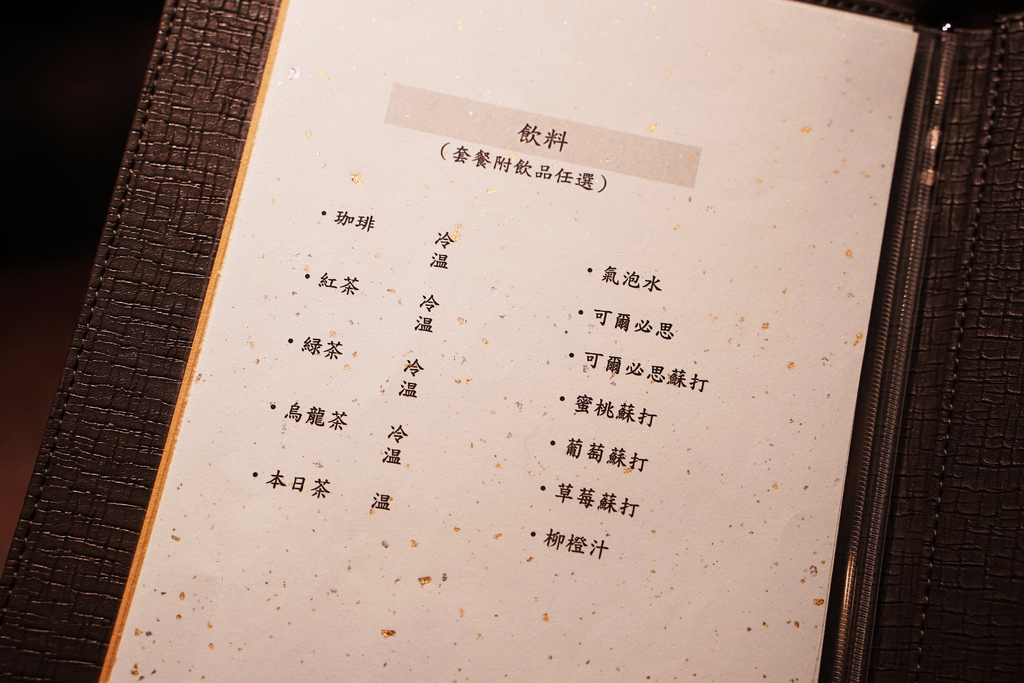 飲料
（套餐附飲品任選）
•珈琲 冷
溫
•紅茶 冷
溫
•綠茶 冷
溫
•烏龍茶 冷
溫
•本日茶 溫
•氣泡水
•可爾必思
•可爾必思蘇打
•蜜桃蘇打
•葡萄蘇打
•草莓蘇打
•柳橙汁